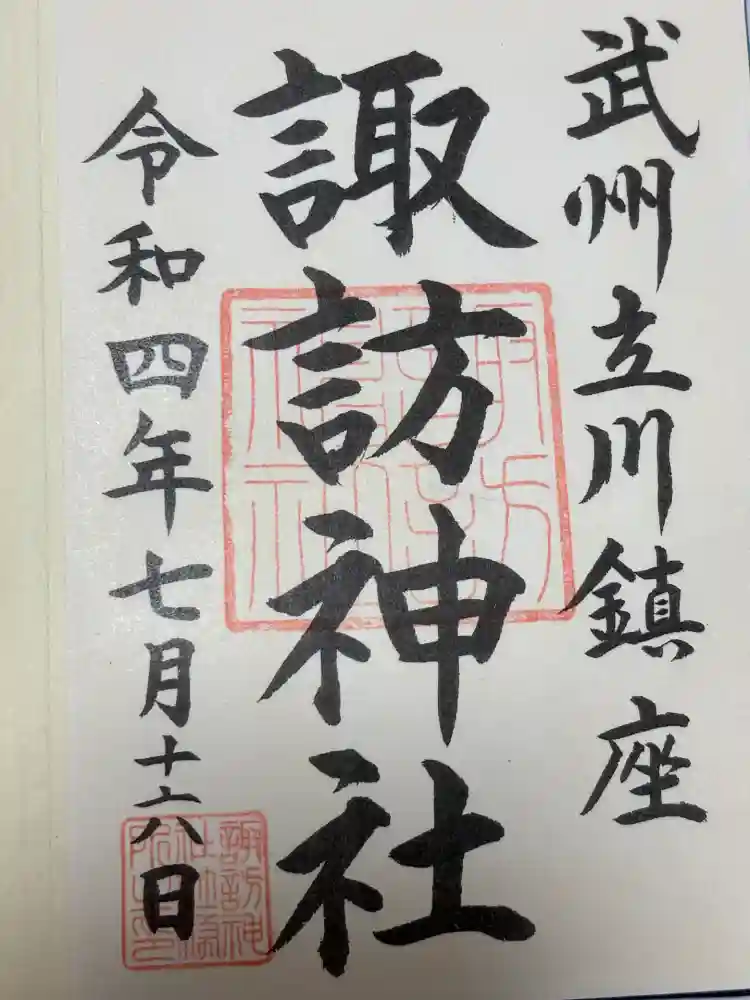 武州立川鎮座
諏訪神社
令和四年七月十六日
諏訪神社